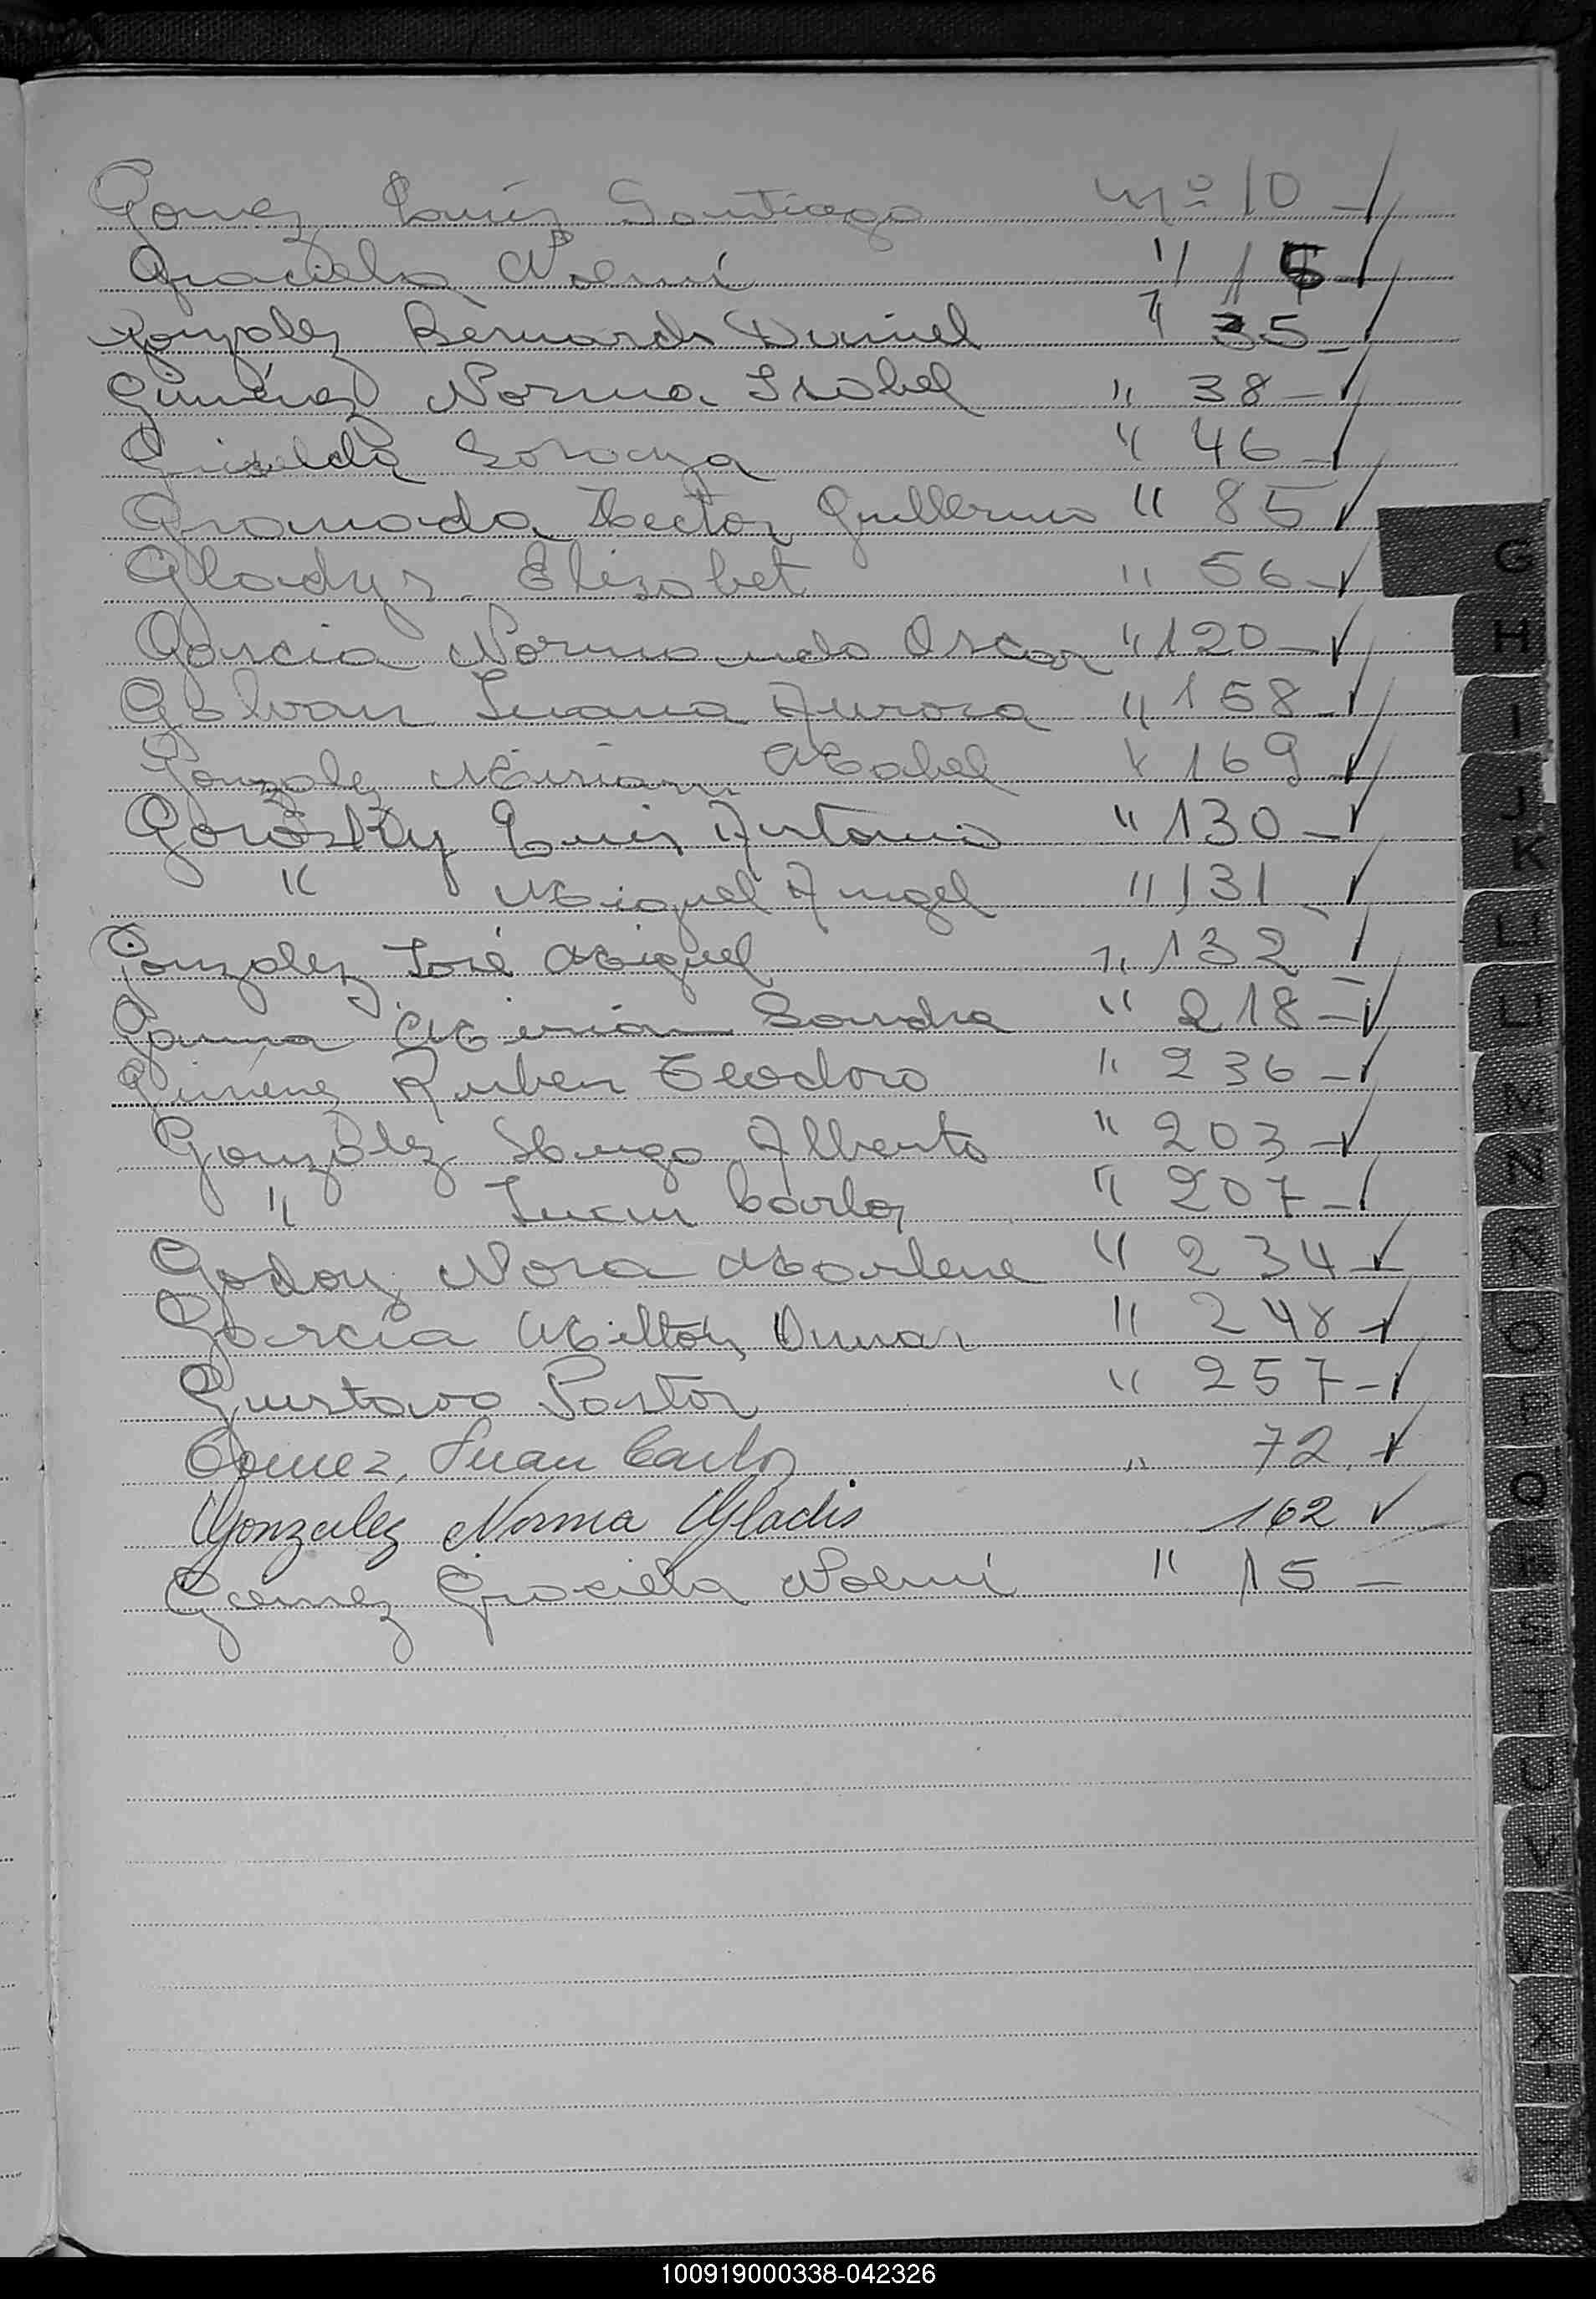 Gomez Luis Santiago Nº 10 - ✓
Graciela Noemí " 15 - ✓
Gonzalez Bernardo Daniel " 35 - ✓
Gimenez Norma Isabel " 38 - ✓
Griselda Soraya " 46 - ✓
Granada Hector Guillermo " 85 ✓
Gladys Elisabet " 56 - ✓
Garcia Normando Oscar " 120 - ✓
Galvan Juana Aurora " 158 - ✓
Gonzalez Miriam Mabel " 169 ✓
Gorosky Luis Antonio " 130 - ✓
" Miguel Angel " 131 - ✓
Gonzalez José Miguel " 132 - ✓
Miriam Sandra " 218 - ✓
Gimenez Ruben Teodoro " 236 - ✓
González Hugo Alberto " 203 - ✓
" Juan Carlos " 207 - ✓
Godoy Nora Marlene " 234 - ✓
Garcia Milton Omar " 248 - ✓
Gustavo Pastor " 257 - ✓
Gomez, Juan Carlos " 72. ✓
Gonzalez Norma Gladis 162 ✓
Gomez Graciela Noemí " 15 -
G
H
I
J
K
L
LL
M
N
Ñ
O
P
Q
R
S
T
U
V
X
100919000338-042326